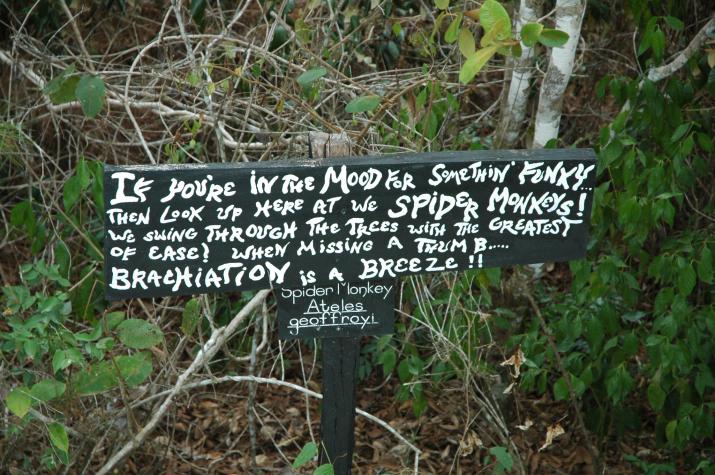 IF YOU'RE IN THE MOOD FOR SOMETHIN' FUNKY...
THEN LOOK UP HERE AT WE SPIDER MONKEYS!
WE SWING THROUGH THE TREES WITH THE GREATEST
OF EASE! WHEN MISSING A THUMB.....
BRACHIATION is A BREEZE!!
Spider Monkey
Ateles
geoffroyi